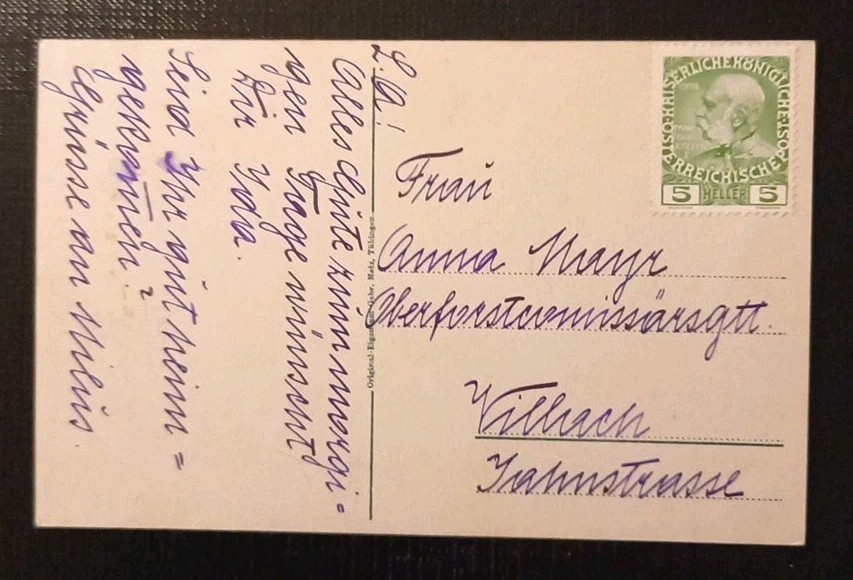 L. A!
Alles Gute zum morgi=
gen Tage wünscht
Dir Ida.
Seid Ihr gut heim=
gekomen?
Grüsse an Milus.
Original-Eigentum Gebr. Metz, Tübingen.
ÖSTERREICHISCHE KAISERLICHE KÖNIGLICHE POST
1908
5 HELLER 5
Frau
Anna Mayr
Oberforstcomissärsgtt.
Villach
Jahnstrasse